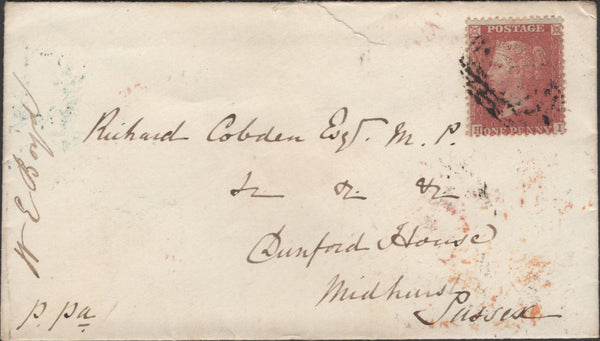 POSTAGE
H ONE PENNY I
Richard Cobden Esqr. M. P.
&c &c &c
Dunford House
Midhurst
Sussex
W E
p. pd